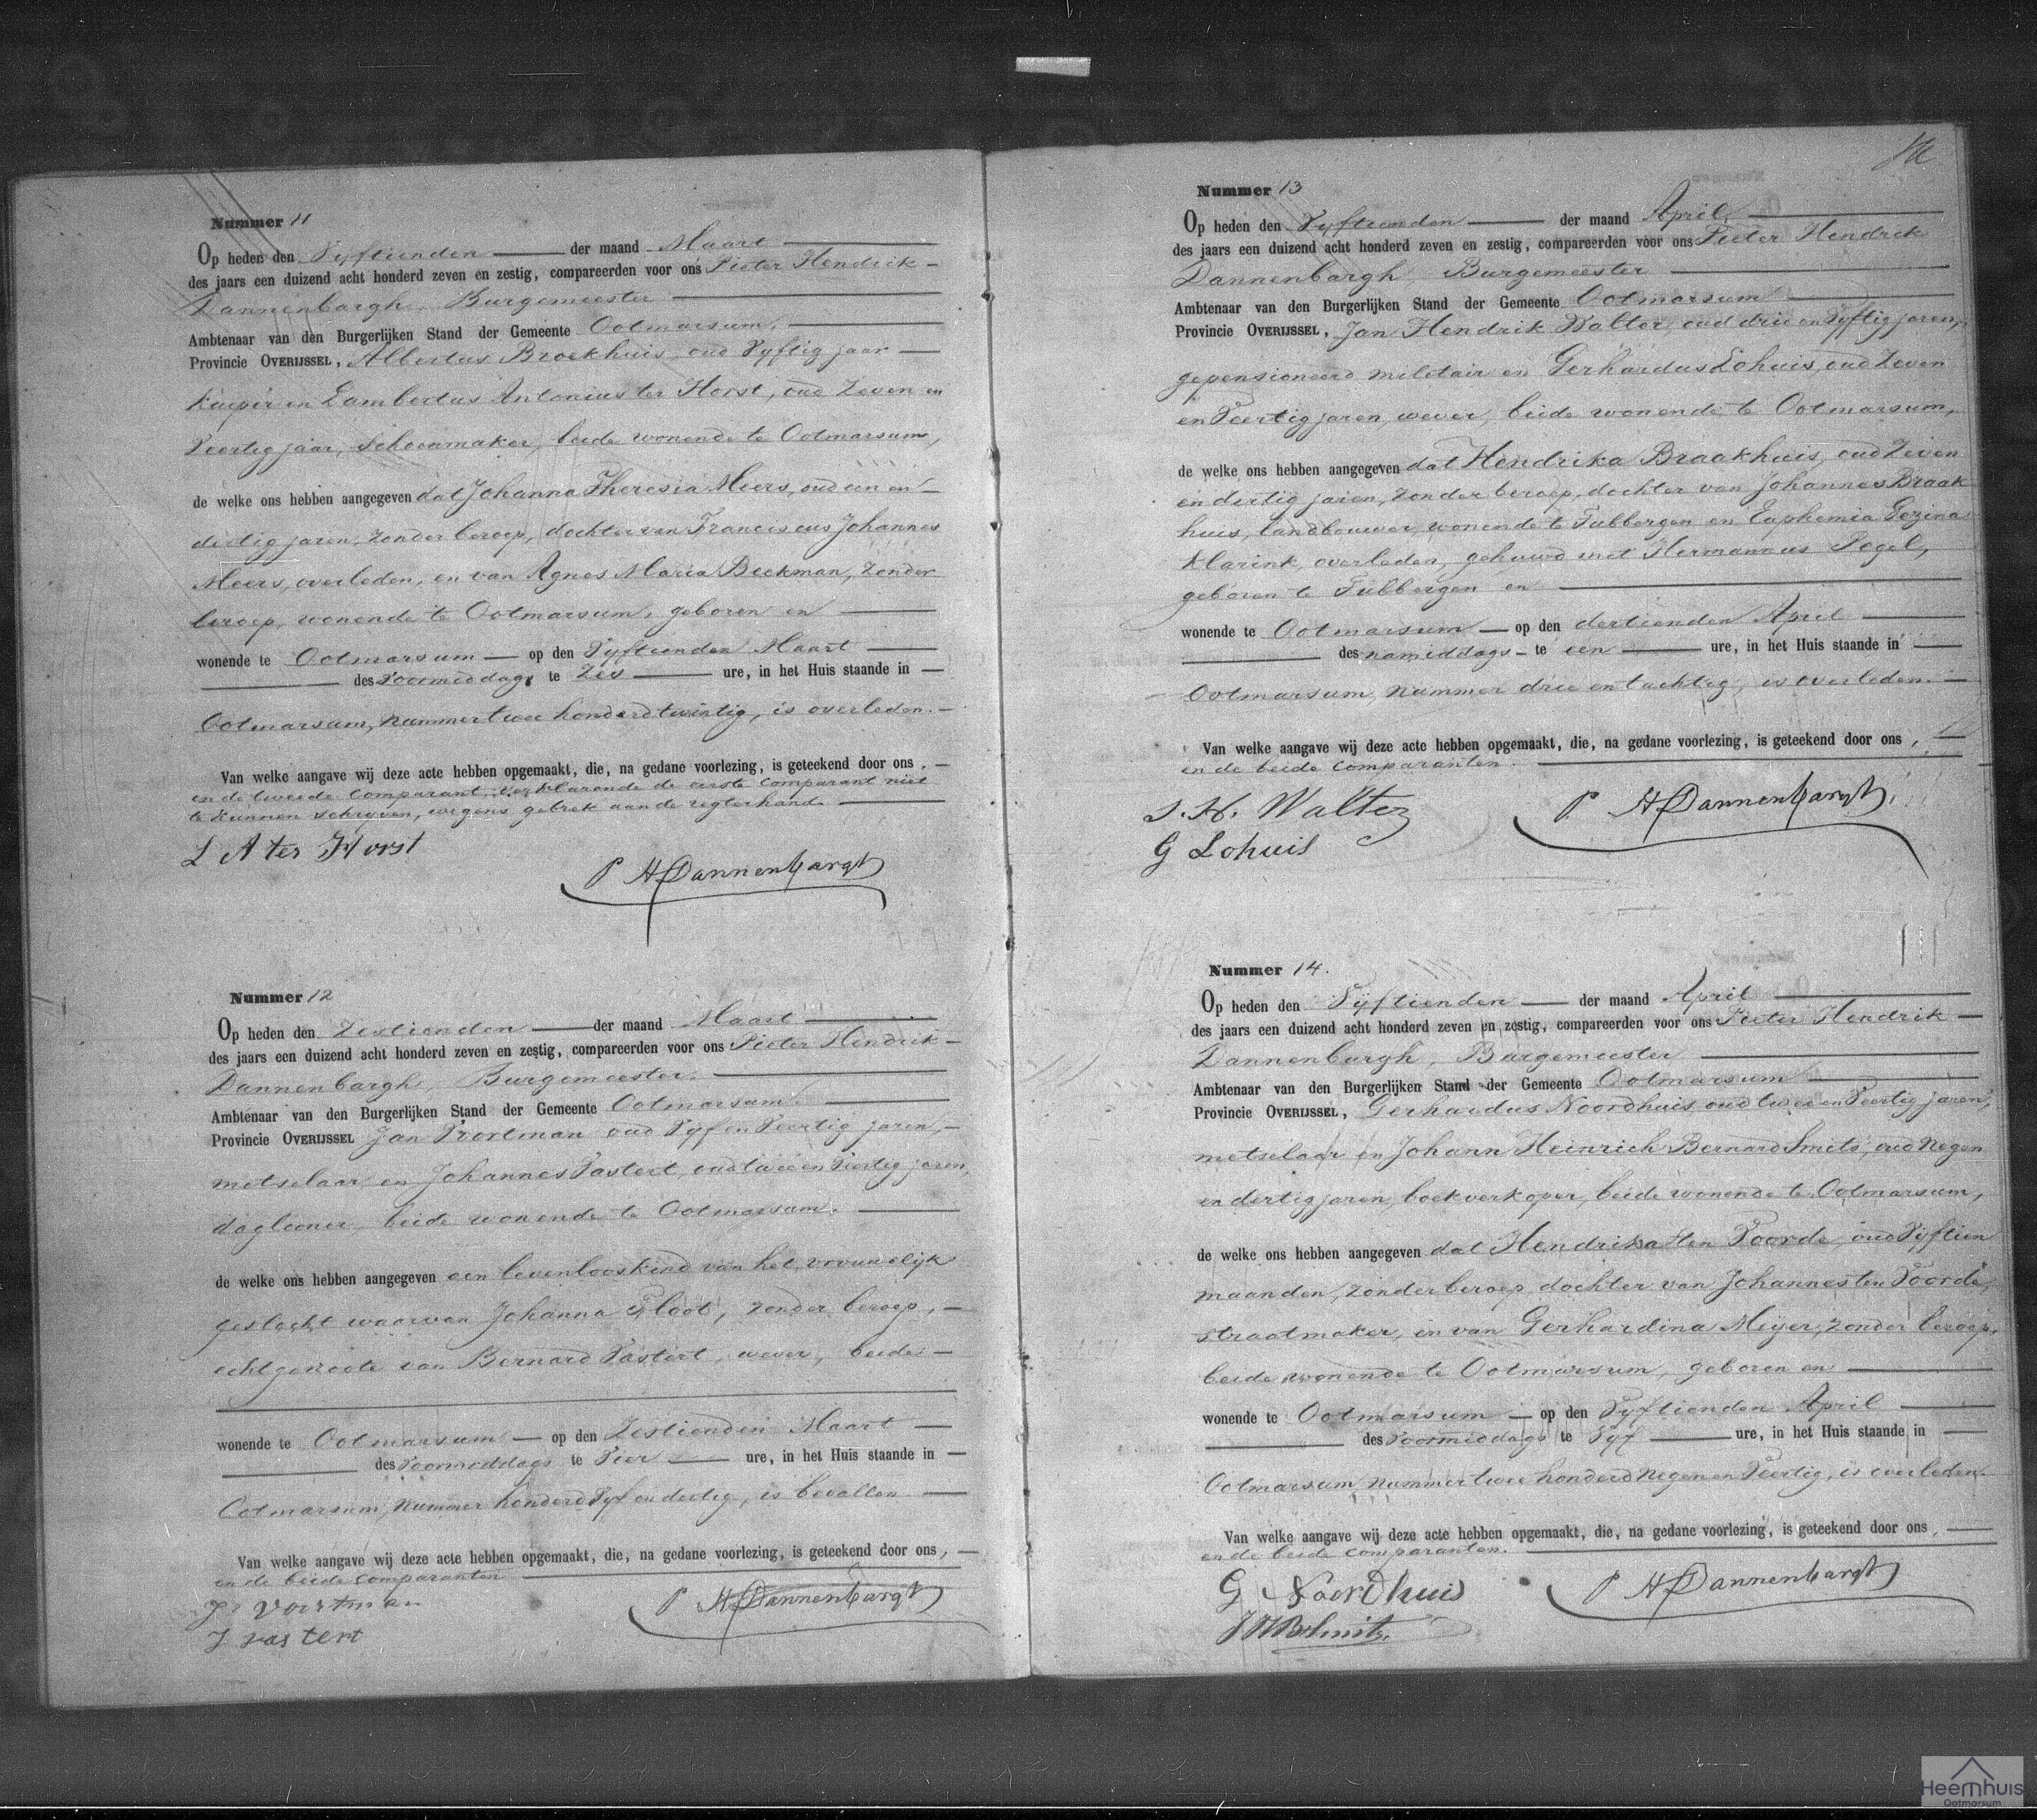 Nummer 11
Op heden den Vyftienden der maand Maart
des jaars een duizend acht honderd zeven en zestig, compareerden voor ons Pieter Hendrik
Dannenbargh, Burgemeester
Ambtenaar van den Burgerlijken Stand der Gemeente Ootmarsum,
Provincie OVERIJSSEL, Albertus Broekhuis, oud Vyftig jaar
Kuiper en Lambertus Antonius ter Horst, oud Zeven en
Veertig jaar, Schoenmaker, beide wonende te Ootmarsum,
de welke ons hebben aangegeven dat Johanna Theresia Meers, oud een en
dertig jaren, zonder beroep, dochter van Franciscus Johannes
Meers, overleden, en van Agnes Maria Beekman, zonder
beroep, wonende te Ootmarsum, geboren en
wonende te Ootmarsum op den Vyftienden Maart
des Voormiddags te Zes ure, in het Huis staande in
Ootmarsum, Nummer twee honderd twintig, is overleden.
Van welke aangave wij deze acte hebben opgemaakt, die, na gedane voorlezing, is geteekend door ons,
en de tweede comparant, verklarende de eerste comparant niet
te kunnen schryven, wegens gebrek aan de regterhand.
L A ter Horst
P H Dannenbargh
Nummer 12
Op heden den Zestienden der maand Maart
des jaars een duizend acht honderd zeven en zestig, compareerden voor ons Pieter Hendrik
Dannenbargh, Burgemeester.
Ambtenaar van den Burgerlijken Stand der Gemeente Ootmarsum.
Provincie OVERIJSSEL Jan Voortman oud Vyf en Veertig jaren,
metselaar, en Johannes Vastert, oud twee en Veertig jaren,
daglooner, beide wonende te Ootmarsum.
de welke ons hebben aangegeven een levenloos kind van het vrouwelijk
geslacht waarvan Johanna Floot, zonder beroep,
echtgenoote van Bernard Vastert, wever, beide
wonende te Ootmarsum op den Zestienden Maart
des Voormiddags te Vier ure, in het Huis staande in
Ootmarsum, Nummer honderd Vyf en dertig, is bevallen.
Van welke aangave wij deze acte hebben opgemaakt, die, na gedane voorlezing, is geteekend door ons,
en de beide comparanten
Jn Voortman
J vastert
P H Dannenbargh
Nummer 13
Op heden den Vyftienden der maand April,
des jaars een duizend acht honderd zeven en zestig, compareerden voor ons Pieter Hendrik
Dannenbargh, Burgemeester
Ambtenaar van den Burgerlijken Stand der Gemeente Ootmarsum
Provincie OVERIJSSEL, Jan Hendrik Walter, oud drie en Vyftig jaren,
gepensioneerd militair en Gerhardus Lohuis, oud Zeven
en Veertig jaren, wever, beide wonende te Ootmarsum,
de welke ons hebben aangegeven dat Hendrika Braakhuis, oud Zeven
en dertig jaren, zonder beroep, dochter van Johannes Braak
huis, landbouwer, wonende te Tubbergen en Euphemia Gezina
Klarink, overleden, gehuwd met Hermannus Pegel,
geboren te Tubbergen en
wonende te Ootmarsum op den dertienden April
des namiddags te een ure, in het Huis staande in
Ootmarsum, Nummer drie en tachtig, is overleden.
Van welke aangave wij deze acte hebben opgemaakt, die, na gedane voorlezing, is geteekend door ons,
en de beide comparanten.
J. H. Walter
G Lohuis
P H Dannenbargh
Nummer 14.
Op heden den Vijftienden der maand April
des jaars een duizend acht honderd zeven en zestig, compareerden voor ons Pieter Hendrik
Dannenburgh, Burgemeester
Ambtenaar van den Burgerlijken Stand der Gemeente Ootmarsum
Provincie OVERIJSSEL, Gerhardus Noordhuis oud twee en Veertig jaren,
metselaar en Johann Heinrich Bernard Smits, oud Negen
en dertig jaren, boekverkoper, beide wonende te Ootmarsum,
de welke ons hebben aangegeven dat Hendrika ten Voorde, oud Vijftien
maanden, zonder beroep, dochter van Johannes ten Voorde,
straatmaker, en van Gerhardina Meijer, zonder beroep,
beide wonende te Ootmarsum, geboren en
wonende te Ootmarsum op den Vyftienden April
des Voormiddags te Vyf ure, in het Huis staande in
Ootmarsum, Nummer twee honderd Negen en Veertig, is overleden.
Van welke aangave wij deze acte hebben opgemaakt, die, na gedane voorlezing, is geteekend door ons,
en de beide comparanten.
G Noordhuis
J H B Smits
P H Dannenbargh
Heemhuis
Ootmarsum